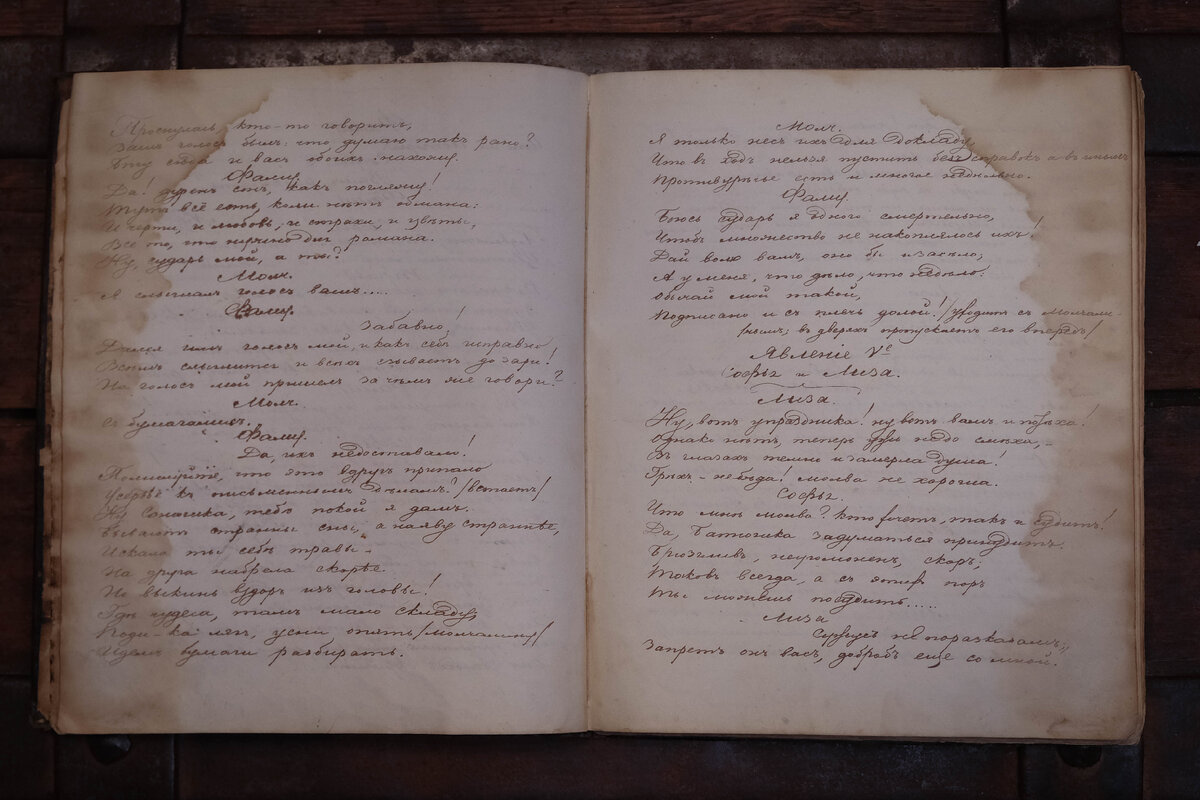 Проснулась, кто-то говоритъ,
Вашъ голосъ былъ: что думаю такъ рано?
Бѣгу сюда и васъ обоихъ нахожу.
Фаму.
Да! дуренъ сонъ, какъ погляжу!
Тутъ всё есть, коли нѣтъ обмана:
И черти, и любовь, и страхи, и цвѣты,
Ну, сударь мой, а ты?
Молч.
Я слышалъ голосъ вашъ....
Фаму.
Забавно!
Дался имъ голосъ мой, и какъ себѣ исправно
Всѣмъ слышится и всѣхъ сзываетъ до зари!
На голосъ мой пришелъ зачѣмъ же говори?
Молч.
Съ бумагами.
Фаму.
Да, ихъ недоставало!
Помилуйте, что это вдругъ припало
Усердье къ письменнымъ дѣламъ! /встаетъ/
Ну Сонюшка, тебѣ покой я дамъ.
Бываютъ странны сны, а наяву страннѣе,
Искала ты себѣ травы –
На друга набрела скорѣе.
Повыкинь вздоръ изъ головы!
Гдѣ чудеса, тамъ мало складу,
Поди-ка лягъ, усни опять /Молчалину/
Идемъ бумаги разбирать.
Молч.
Я только несъ ихъ для докладу,
Что въ ходъ нельзя пустить безъ справокъ а въ иныхъ
Противурѣчье есть и многое недѣльно.
Фаму.
Боюсь сударь я одного смертельно,
Чтобъ множество не накоплялось ихъ!
Дай волю вамъ, оно бы и засѣло;
А у меня, что дѣло, что недѣло:
Обычай мой такой,
Подписано и съ плечь долой! /уводитъ съ Молчали-
нымъ; въ дверяхъ пропускаетъ его впередъ/
Явленіе Vе
Софья и Лиза.
Лиза.
Ну, вотъ у праздника! ну вотъ вамъ и потѣха!
Однако нѣтъ, теперь ужъ не до смѣха, –
Въ глазахъ темно и замерла душа!
Грѣхъ – не бѣда! молва не хороша.
Софья.
Что мнѣ молва? Кто хочетъ, такъ и судитъ!
Да, Батюшка задуматься принудитъ.
Брюзгливъ, неугомоненъ, скоръ;
Таковъ всегда, а съ этихъ поръ
Ты можешь посудить.....
Лиза
Сужусь не по разсказамъ;
Запретъ онъ васъ, добробъ еще со мной.